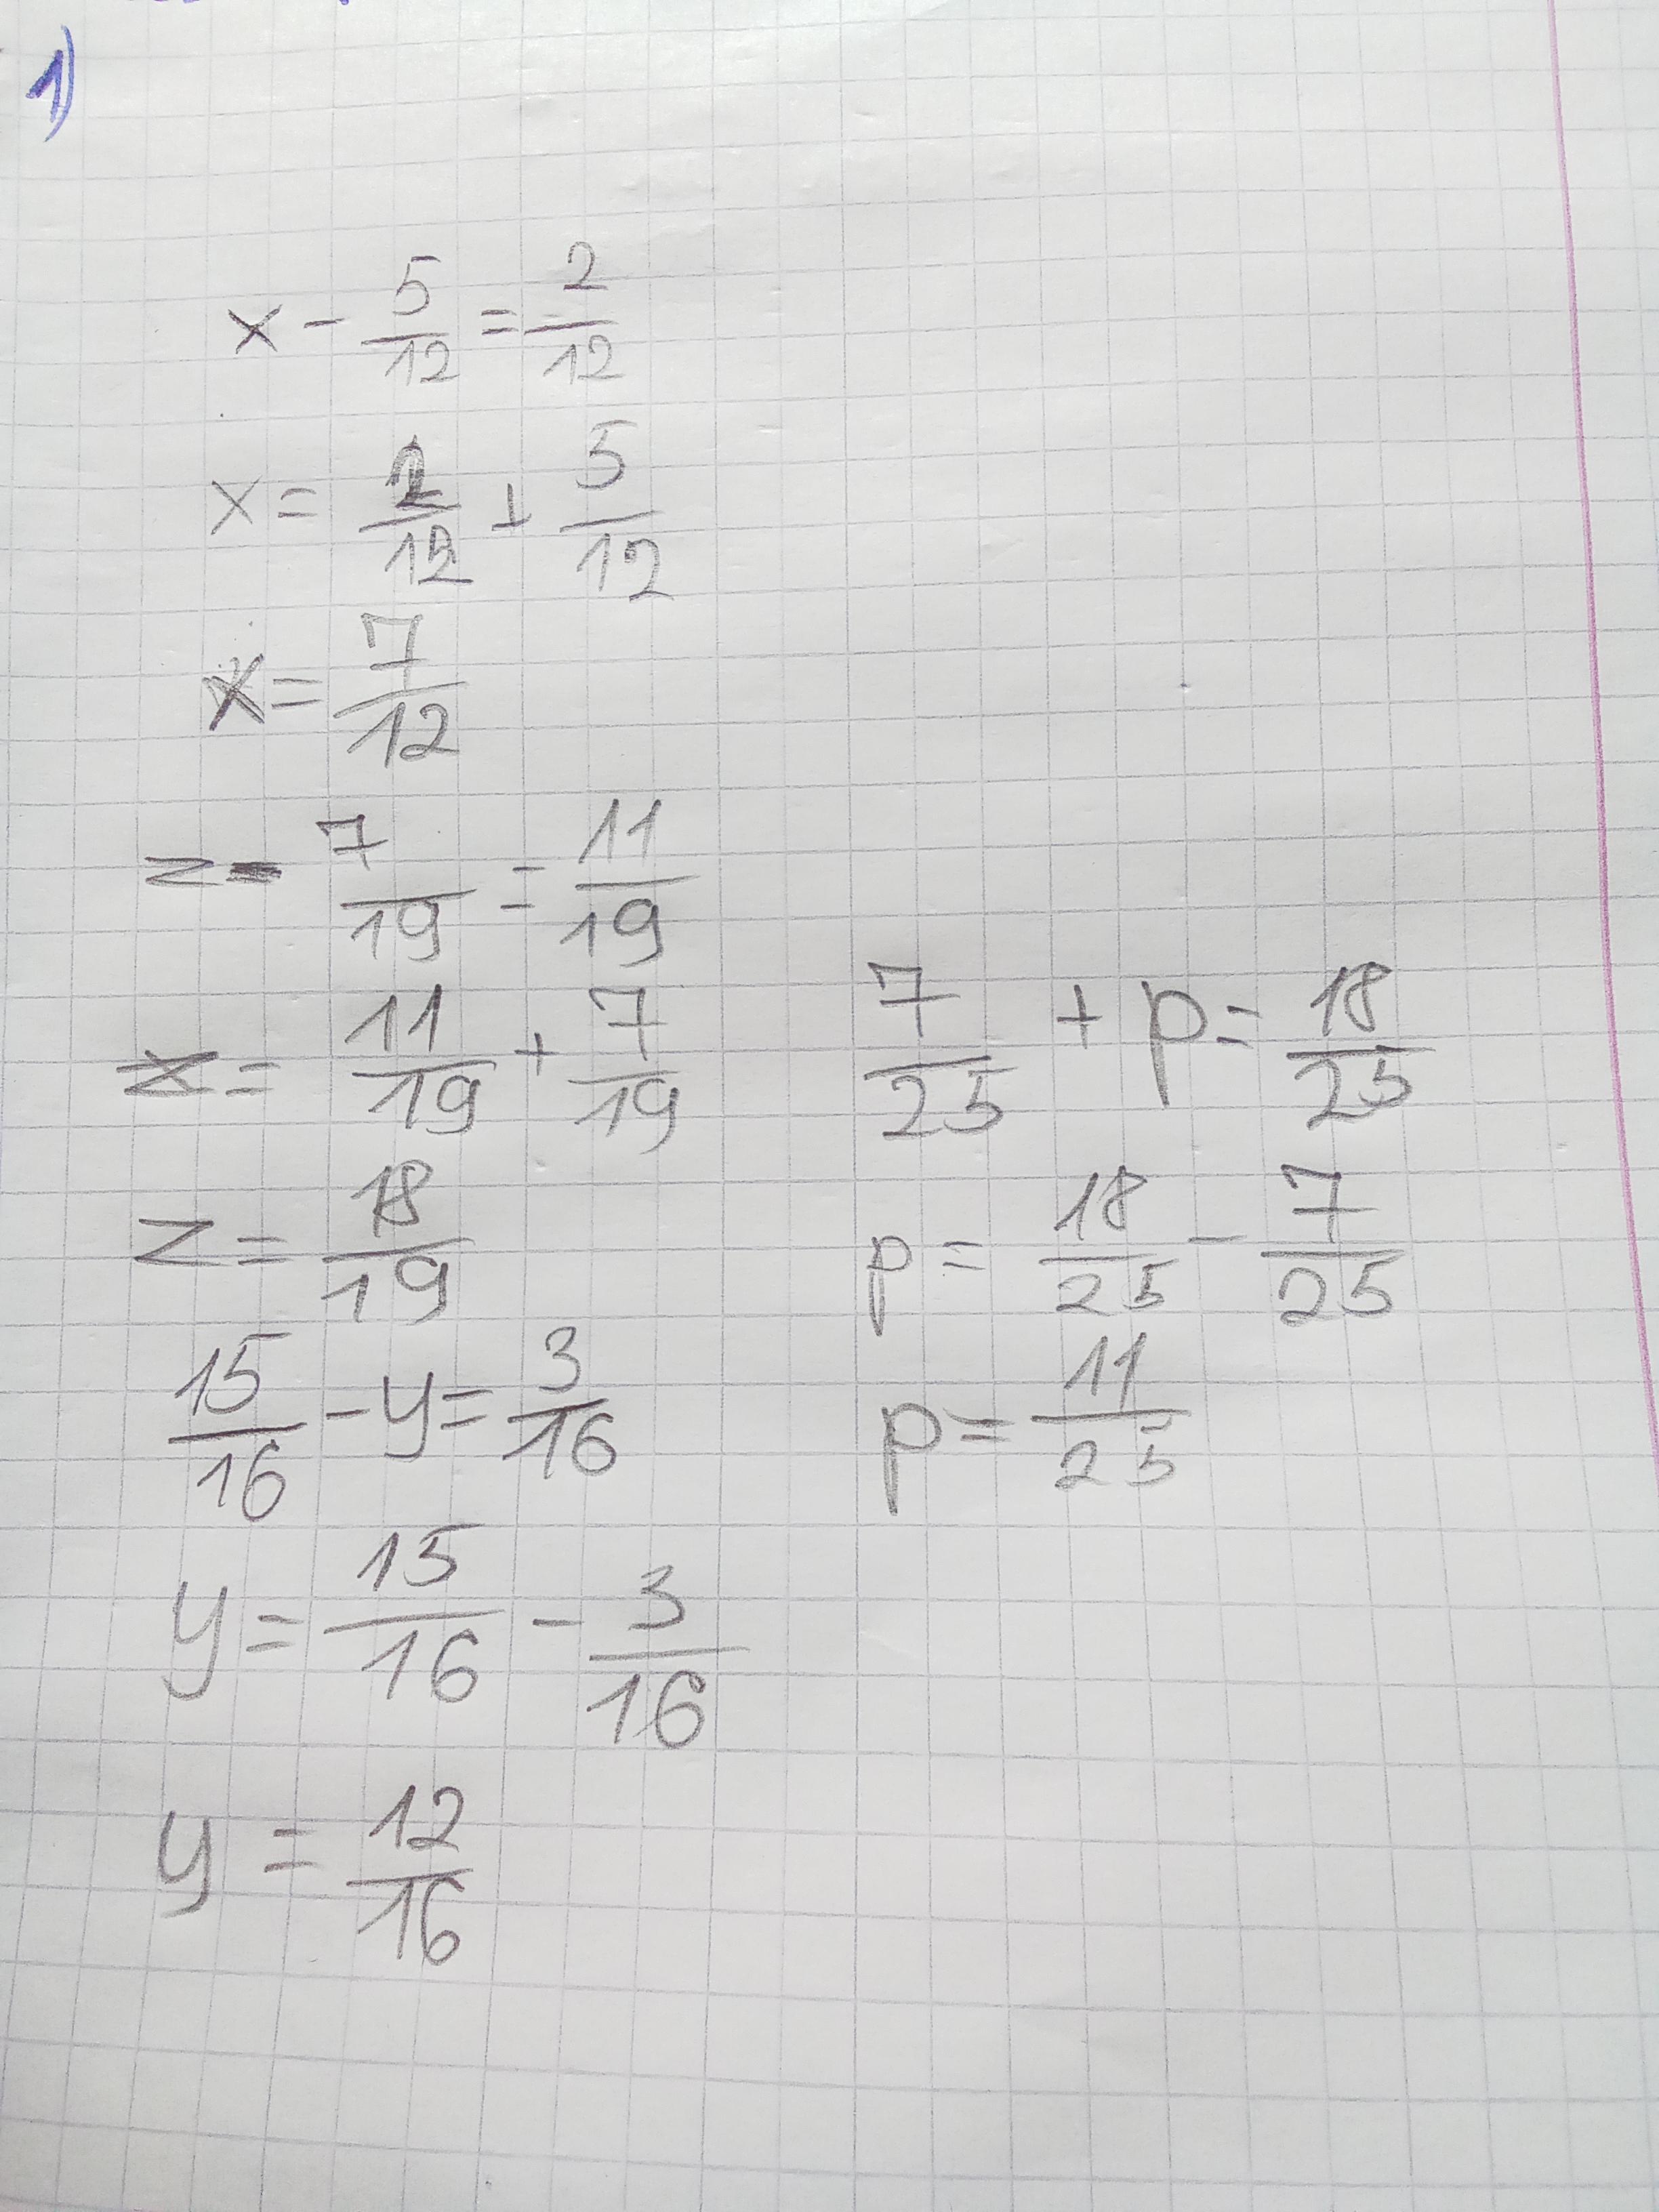 1)
x - 5/12 = 2/12
x = 2/12 + 5/12
x = 7/12
z - 7/19 = 11/19
z = 11/19 + 7/19
z = 18/19
15/16 - y = 3/16
y = 15/16 - 3/16
y = 12/16
7/25 + p = 18/25
p = 18/25 - 7/25
p = 11/25